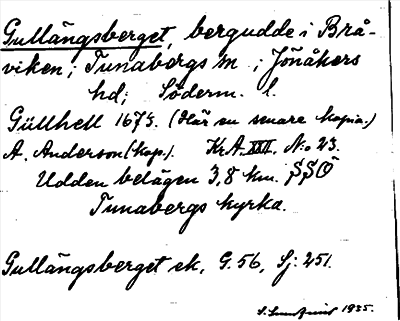 Gullängsberget, bergudde i Brå-
viken; Tunabergs sn; Jönåkers
hd; Söderm. l.
Güllhell 1675. (Här en senare kopia.)
A. Anderson (kop.). KrA. XXII. No 23.
Udden belägen 3,8 km. SSO
Tunabergs kyrka.
Gullängsberget ek, G. 56, Sj: 251.
1935.